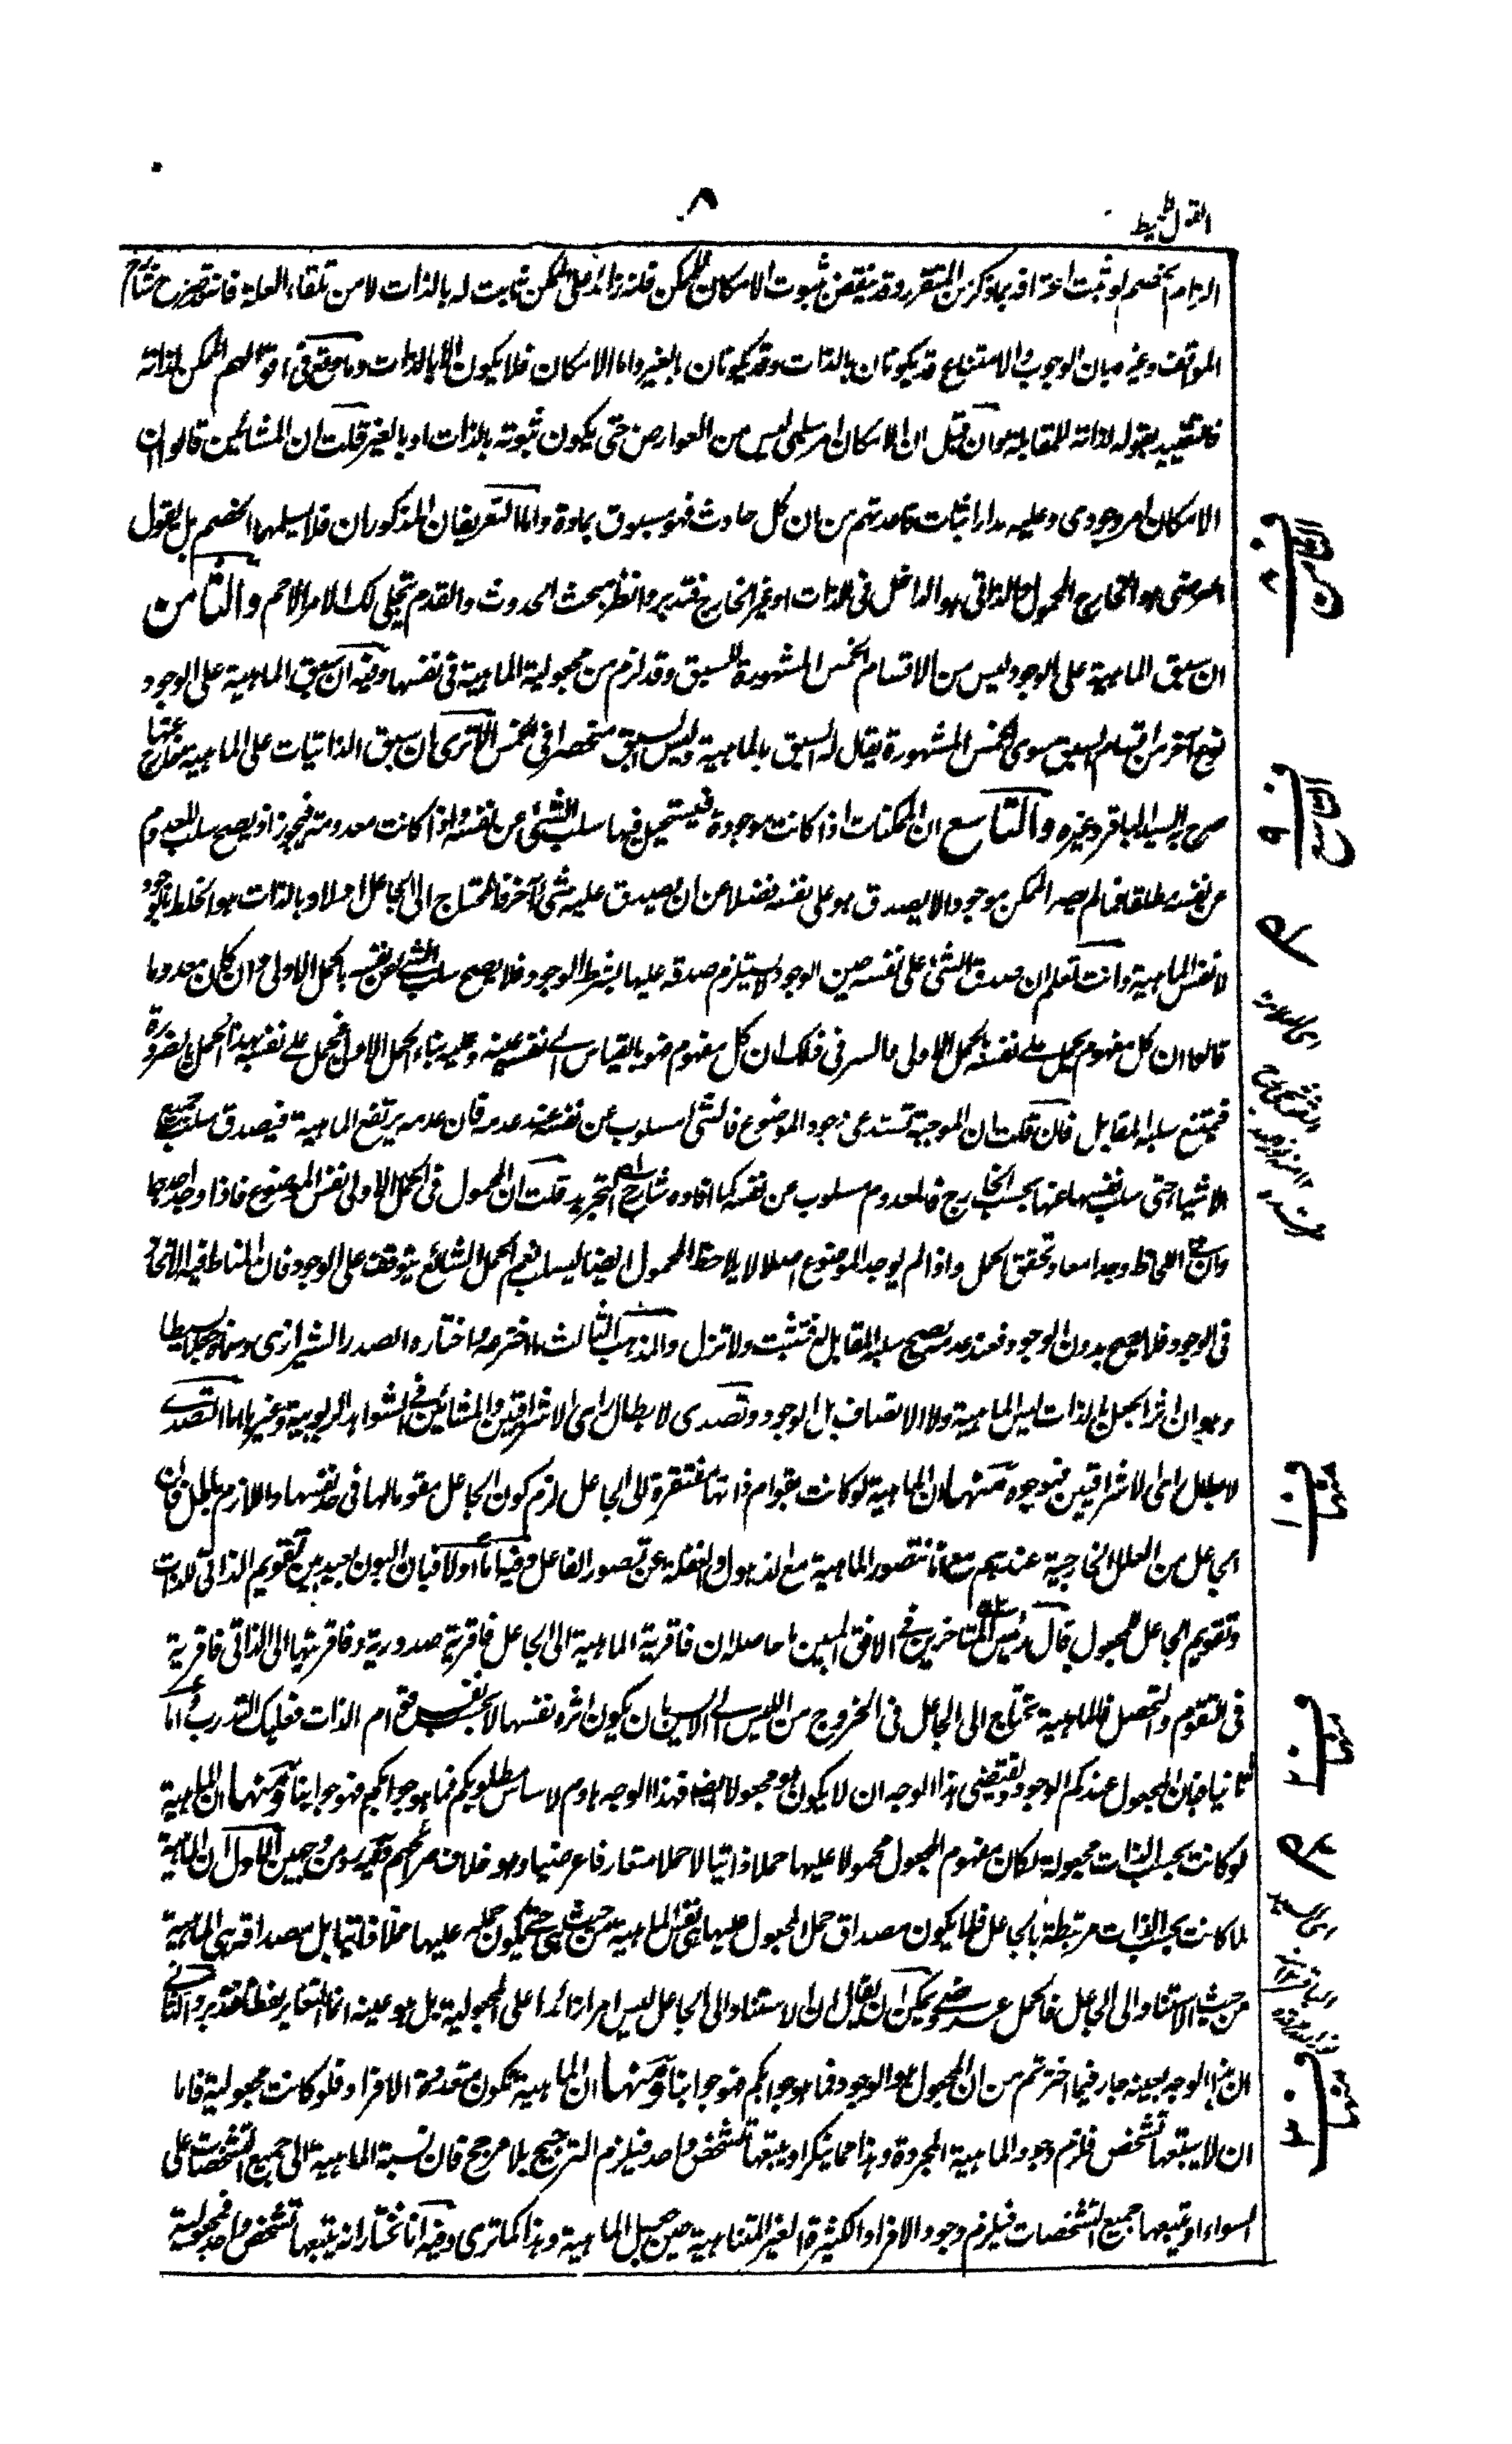 القول المحيط
٨
الزام الخصم لو ثبت اعترافه بما ذكر من المتقرر وقد ينقض بثبوت الامكان للممكن فانه زائد على الممكن ثابت له بالذات لا من تلقاء العلة فانه قد صرح شارح
المواقف وغيره بان الوجوب والامتناع قد يكونان بالذات وقد يكونان بالغير واما الامكان فلا يكون الا بالذات وما وقع في قولهم الممكن لذاته
فالتقييد بقوله لذاته للمقابلة وان قيل ان الامكان امر سلبي ليس من العوارض حتى يكون ثبوته بالذات او بالغير قلت ان المشائين قالوا ان
الامكان امر وجودي وعليه مدار اثبات قاعدتهم من ان كل حادث فهو مسبوق بمادة واما التعريفان المذكوران فلا يسلمهما الخصم بل يقول
العرضي هو الخارج المحمول والذاتي هو الداخل في الذات او غير الخارج فتدبر وانظر بحث الحدوث والقدم يتجلى لك الامر الاحم والثامن
ان سبق الماهية على الوجود ليس من الاقسام الخمس المشهورة للسبق وقد لزم من مجعولية الماهية في نفسها وفيه ان سبق الماهية على الوجود
نوع آخر من اقسام السبق سوى الخمس المشهورة يقال له السبق بالماهية وليس السبق منحصرا في الخمس الا ترى ان سبق الذاتيات على الماهية خارج عنها
صرح به السيد الباقر وغيره والتاسع ان الممكنات اذا كانت موجودة فيستحيل فيها سلب الشئ عن نفسه واذا كانت معدومة فيجوز اذ يصح سلب المعدوم
عن نفسه مطلقا فما لم يصر الممكن موجودا لا يصدق هو على نفسه فضلا عن ان يصدق عليه شئ آخر فالمحتاج الى الجاعل اولا وبالذات هو الخلط بالوجود
لا نفس الماهية وانت تعلم ان صدق الشئ على نفسه حين الوجود لا يستلزم صدقه عليها بشرط الوجود فلا يصح سلب الشئ عن نفسه بالحمل الاولي وان كان معدوما
قالوا ان كل مفهوم يحمل على نفسه بالحمل الاولي والسر في ذلك ان كل مفهوم هو بالقياس الى نفسه عينه وعليه بناء الحمل الاولي فيحمل على نفسه بهذا الحمل بالضرورة
فيمتنع سلبه المقابل فان قلت ان الموجبة تستدعي وجود الموضوع فالشئ مسلوب عن نفسه عند عدمه فان عدمه يرتفع الماهية فيصدق سلب جميع
الاشياء حتى سلب نفسها عنها بحسب الخارج فالمعدوم مسلوب عن نفسه كما افاده شارح التجريد قلت ان المحمول في الحمل الاولي نفس الموضوع فاذا وجد احدهما
وان في اللحاظ وجدا معا وتحقق الحمل واذا لم يوجد الموضوع اصلا لا يلاحظ المحمول ايضا ليسلب نعم الحمل الشائع يتوقف على الوجود فان المناط فيه الاتحاد
في الوجود فلا يصح بدون الوجود فعند عدمه يصح سلبه المقابل له فتثبت ولا تزل والمذهب الثالث ما اخترعه واختاره الصدر الشيرازي وسماه جعلا بسيطا
وهو ان اثر الجعل بالذات ليس الماهية ولا الاتصاف بل الوجود وتصدى لابطال راى الاشراقيين والمشائين في الشواهد الربوبية وغيرها اما التصدي
لابطال راى الاشراقيين فبوجوه منها ان الماهية لو كانت بقوام ذاتها مفتقرة الى الجاعل لزم كون الجاعل مقوما لها في حد نفسها واللازم باطل فان
الجاعل من العلل الخارجية عندهم مع انا نتصور الماهية مع الذهول والغفلة عن تصور الفاعل وفيه اما اولا فبان البون بعيد بين تقويم الذاتي للذات
وتقويم الجاعل المجعول قال رئيس المتاخرين في الافق المبين ما حاصله ان فاقرية الماهية الى الجاعل فاقرية صدورية وفاقريتها الى الذاتي فاقرية
في التقوم والتحصل فالماهية تحتاج الى الجاعل في الخروج من الليس الى الايس بان يكون اثره نفسها لا بحسب نفس قوام الذات فعليك التدرب واما
ثانيا فبان المجعول عندكم الوجود ويقتضي هذا الوجه ان لا يكون هو مجعولا ايضا فهذا الوجه هادم لاساس مطلوبكم فما هو جوابكم فهو جوابنا ومنها ان الماهية
لو كانت بحسب الذات مجعولة لكان مفهوم المجعول محمولا عليها حملا ذاتيا لا حملا متعارفا عرضيا وهو خلاف مرامهم وفيه من وجهين الاول ان الماهية
لما كانت بحسب الذات مرتبطة بالجاعل فلا يكون مصداق حمل المجعول عليها هي نفس الماهية من حيث هي حتى يكون حمله عليها حملا ذاتيا بل مصداقه هي الماهية
من حيث الاستناد الى الجاعل فالحمل عرضي ويمكن ان يقال ان الاستناد الى الجاعل ليس امرا زائدا على المجعولية بل هو عينه انما التغاير لفظا فتدبر والثاني
ان هذا الوجه بعينه جار فيما اخترتم من ان المجعول هو الوجود فما هو جوابكم فهو جوابنا ومنها ان الماهية تكون متعددة الافراد فلو كانت مجعولية فاما
ان لا يتبعها تشخص فلزم وجود الماهية المجردة وهذا مما ينكر او يتبعها تشخص واحد فيلزم الترجيح بلا مرجح فان نسبة الماهية الى جميع التشخصات على
السواء او يتبعها جميع التشخصات فيلزم وجود الافراد الكثيرة الغير المتناهية حين جعل الماهية وهذا كما ترى وفيه انا نختار انه يتبعها تشخص واحد مجعولية
الثامن
التاسع